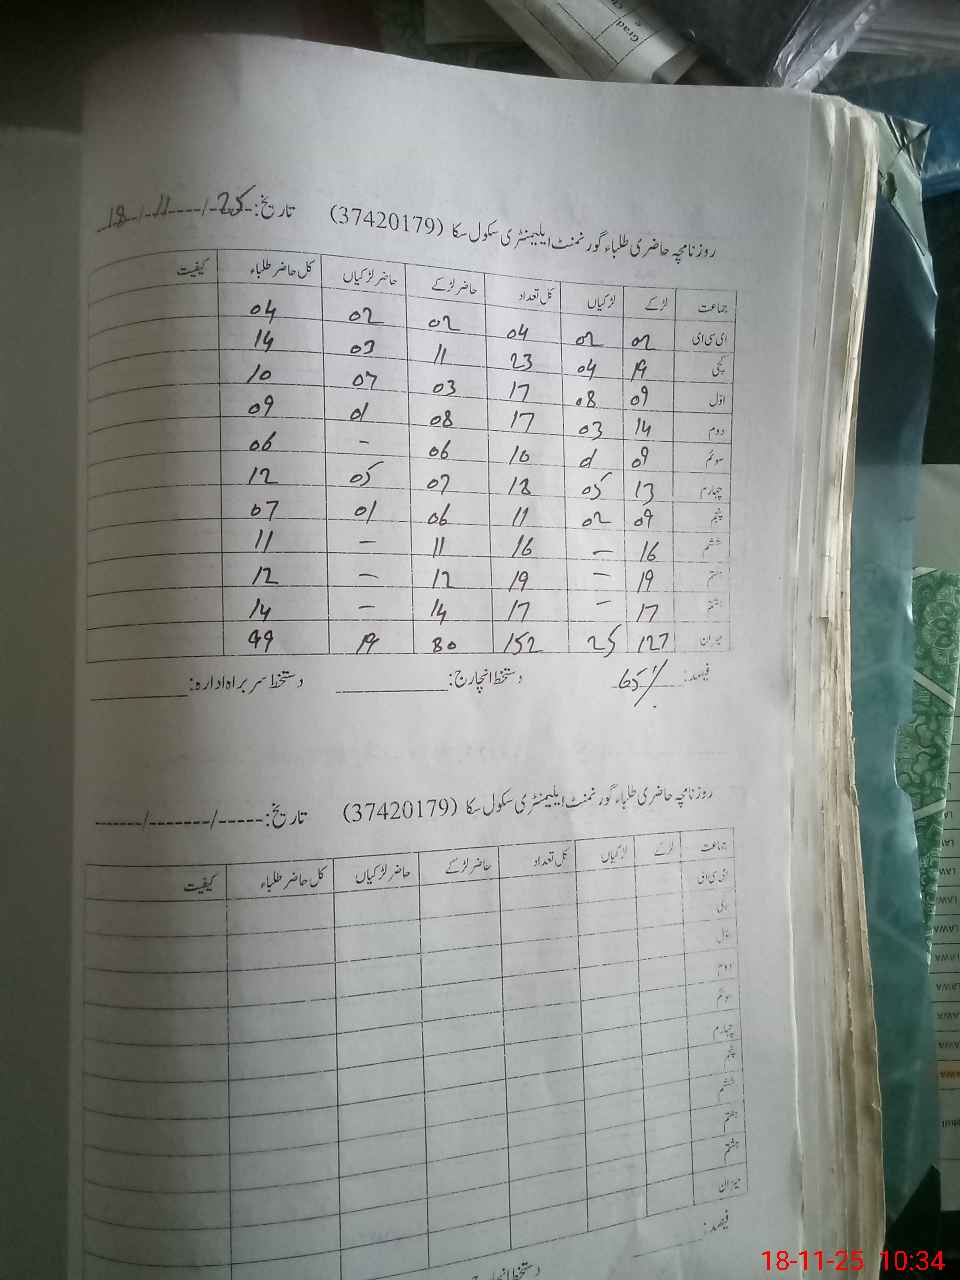 Grad
روزنامچہ حاضری طلباء گورنمنٹ ایلیمنٹری سکول سکا (37420179) تاریخ: 18/11/25
جماعت لڑکے لڑکیاں کل تعداد حاضر لڑکے حاضر لڑکیاں کل حاضر طلباء کیفیت
ای سی ای 02 02 04 02 02 04
کچی 19 04 23 11 03 14
اوّل 09 08 17 03 07 10
دوم 14 03 17 08 01 09
سوئم 09 01 10 06 - 06
چہارم 13 05 18 07 05 12
پنجم 09 02 11 06 01 07
ششم 16 - 16 11 - 11
ہفتم 19 - 19 12 - 12
ہشتم 17 - 17 14 - 14
میزان 127 25 152 80 19 99
فیصد: 65% دستخط انچارج: دستخط سربراہ ادارہ:
روزنامچہ حاضری طلباء گورنمنٹ ایلیمنٹری سکول سکا (37420179) تاریخ: -----/-------/------
جماعت لڑکے لڑکیاں کل تعداد حاضر لڑکے حاضر لڑکیاں کل حاضر طلباء کیفیت
ای سی ای
کچی
اوّل
دوم
سوئم
چہارم
پنجم
ششم
ہفتم
ہشتم
میزان
فیصد:
دستخط انچارج:
LAWA
LAWA
LAWA
LAWA
LAWA
LAWA
18-11-25 10:34